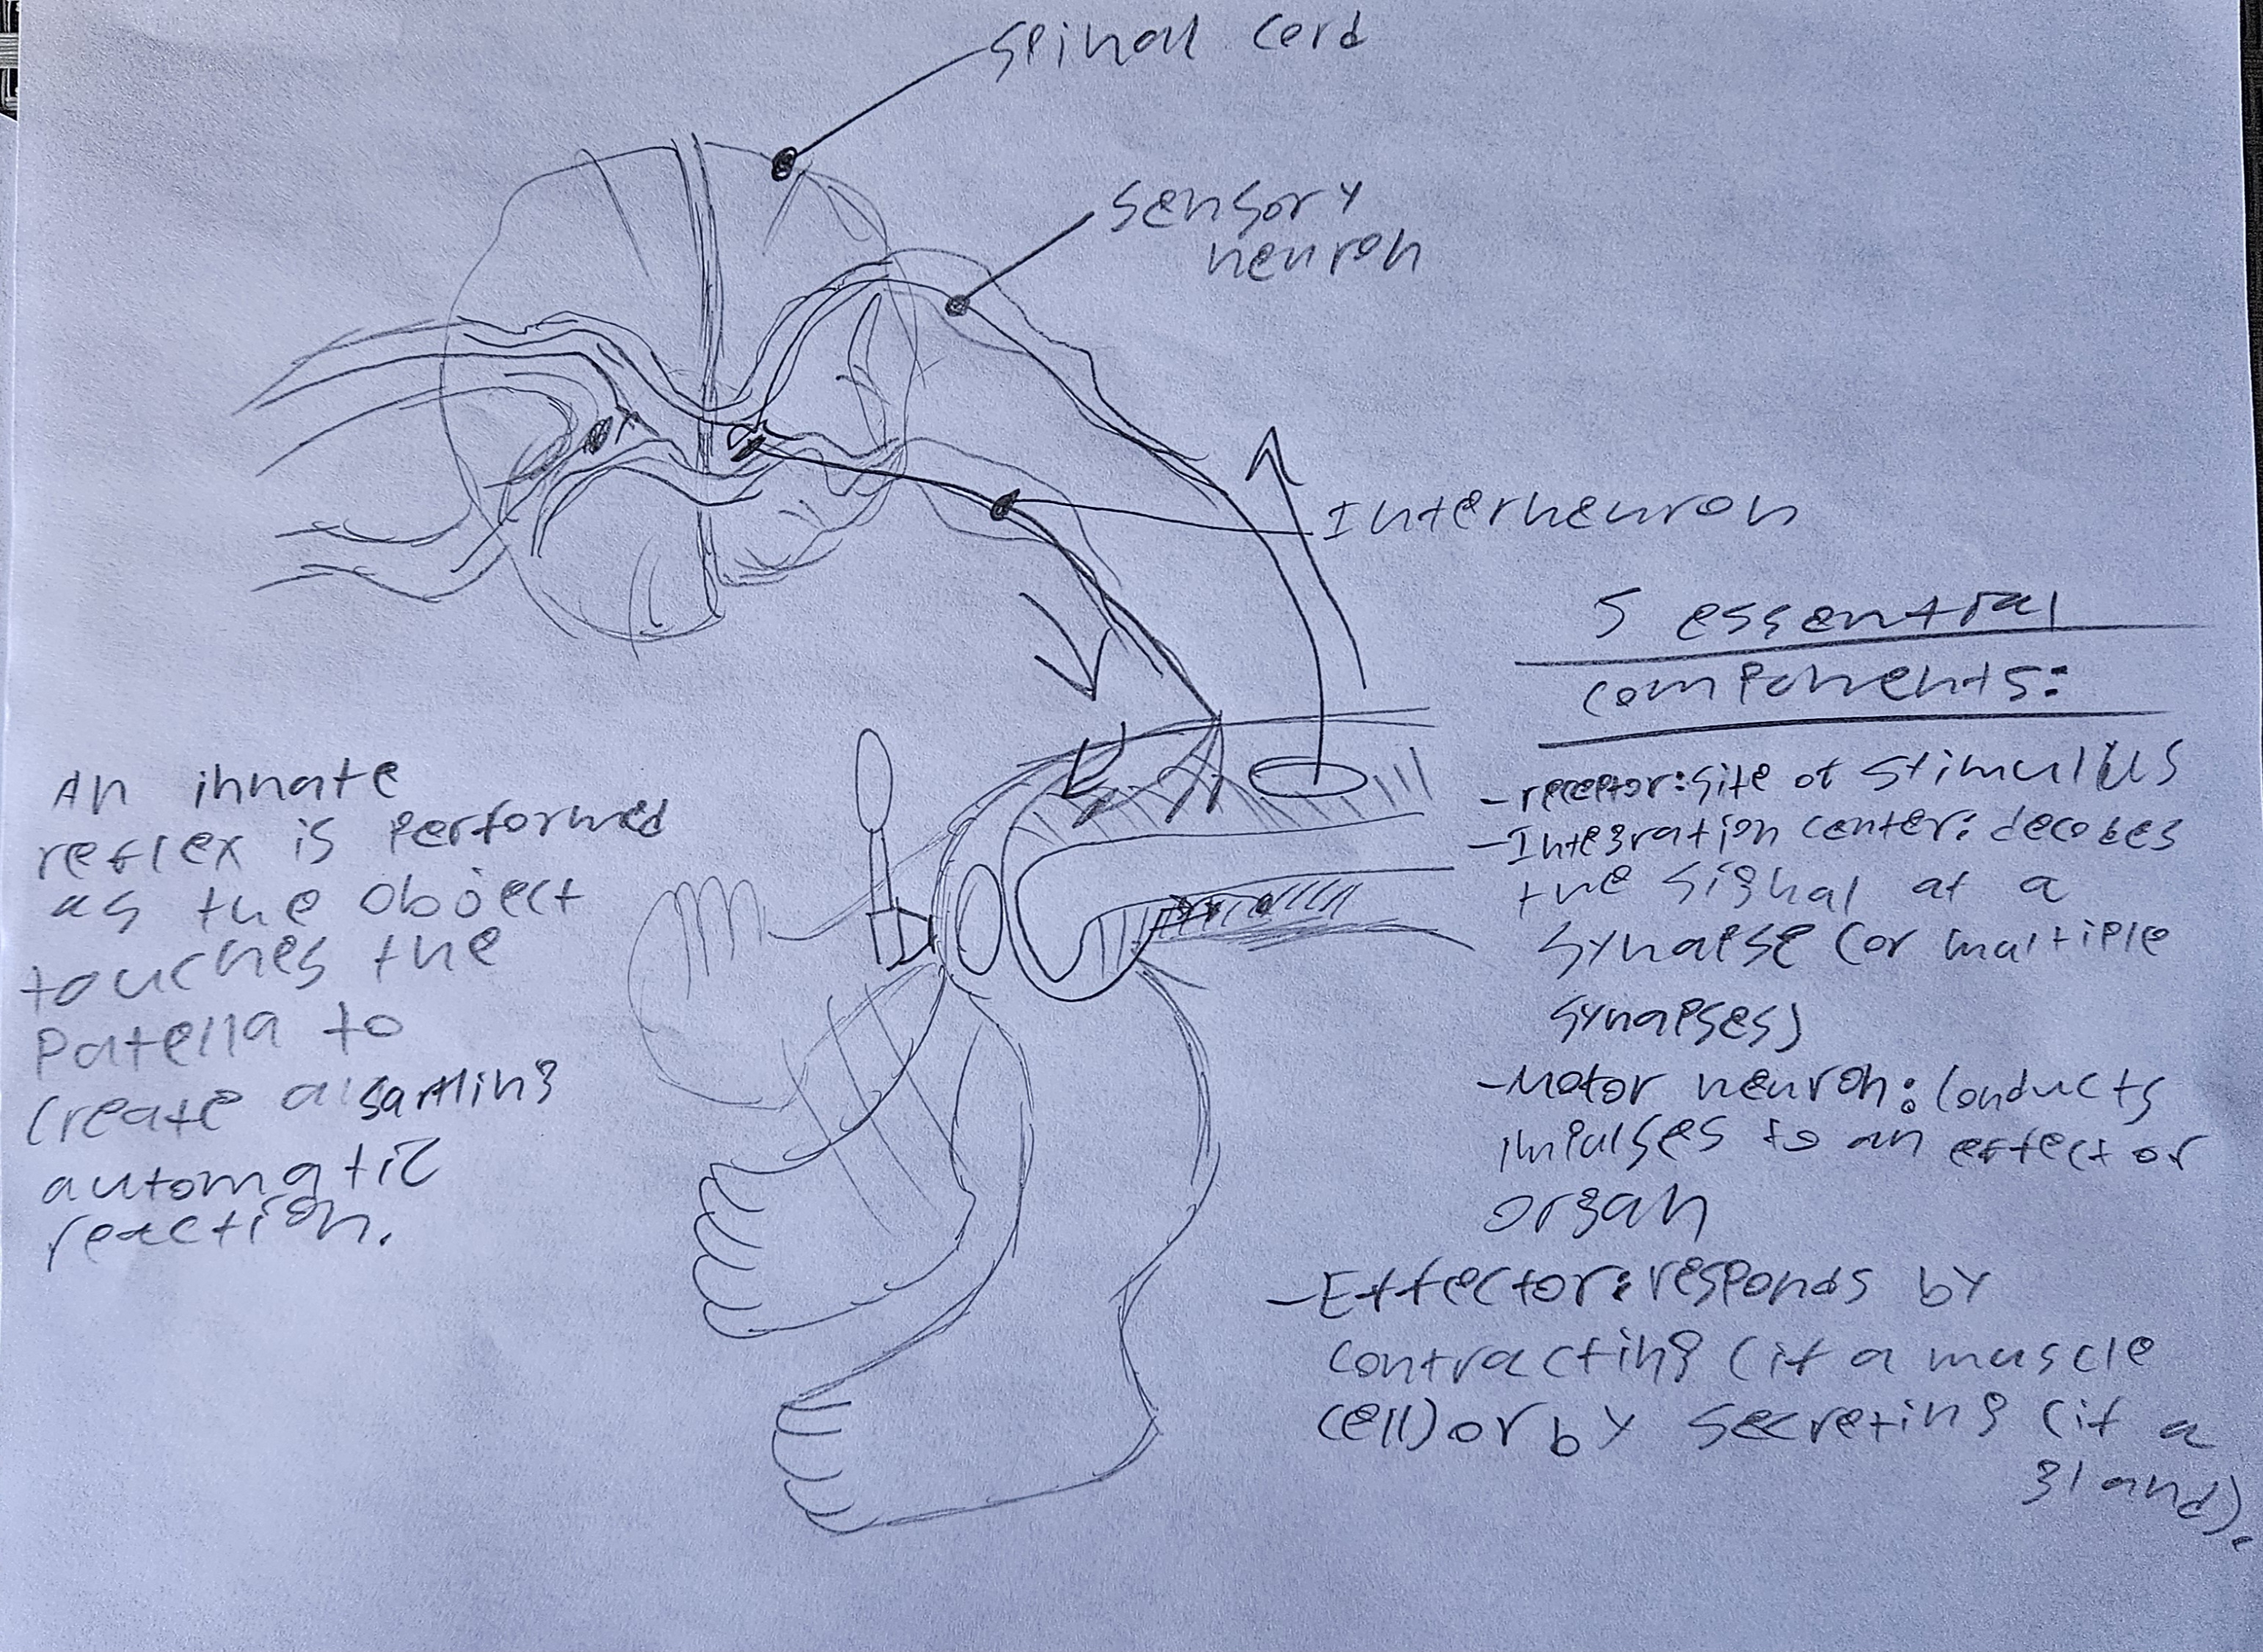 spinal cord
sensory
neuron
Interneuron
5 essential
components:
-receptor: site of stimulus
-Integration center: decodes
the signal at a
synapse (or multiple
synapses)
-Motor neuron: conducts
impulses to an effector
organ
-Effector: responds by
contracting (if a muscle
cell) or by secreting (if a
gland).
An innate
reflex is performed
as the object
touches the
Patella to
create a sartling
automatic
reaction.